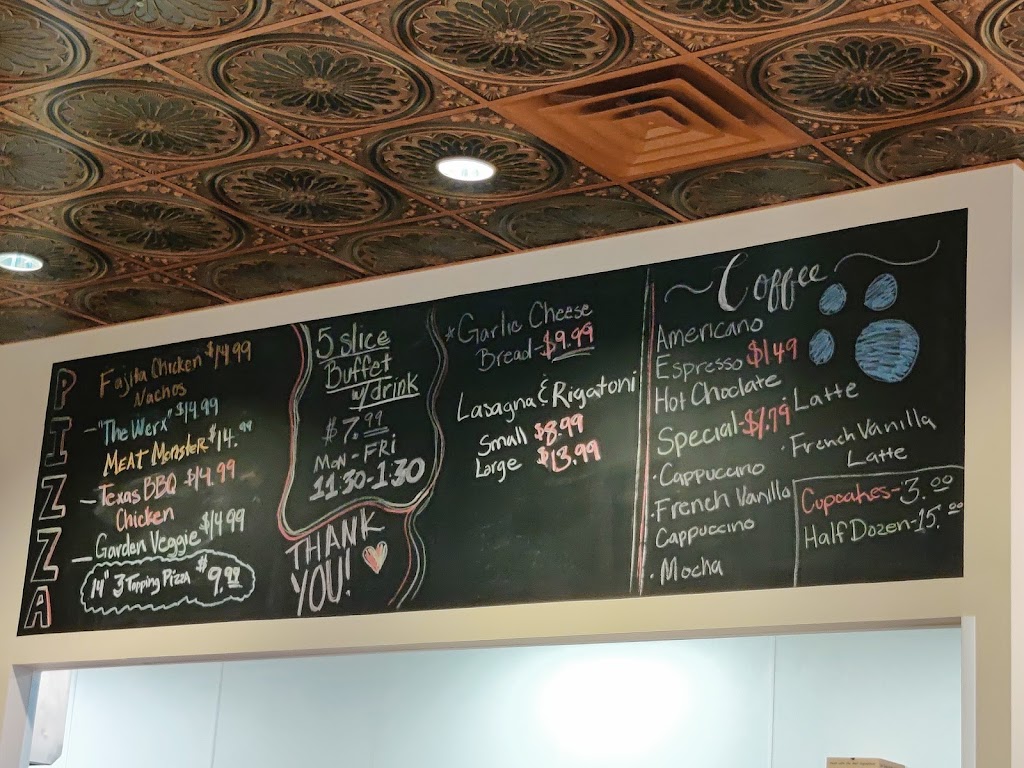 PIZZA
Fajita Chicken $14.99
Nachos
- "The Werx" $14.99
MEAT Monster $14.99
- Texas BBQ $14.99
Chicken
- Garden Veggie $14.99
14" 3 Topping Pizza $9.99
5 slice
Buffet
w/ drink
$7.99
MON - FRI
11:30-1:30
THANK
YOU!
*Garlic Cheese
Bread - $9.99
Lasagna & Rigatoni
Small $8.99
Large $13.99
Coffee
Americano
Espresso $1.49
Hot Choclate
Special - $1.79
· Cappuccino
· French Vanilla
Cappuccino
· Mocha
· Latte
· French Vanilla
Latte
Cupcakes - 3.00
Half Dozen - 15.00